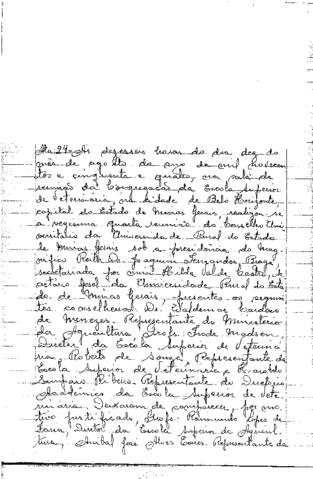 Ata 24 - Às dezesseis horas do dia dez do
mês de agosto do ano de mil novecen
tos e cinquenta e quatro, na sala de
reuniões da Congregação da Escola Superior
de Veterinária, na cidade de Belo Horizonte,
capital do Estado de Minas Gerais, realizou-se
a vigesima quarta reunião do Conselho Uni
versitário da Universidade Rural do Estado
de Minas Gerais sob a presidência do Mag
nifico Reitor Dr. Joaquim Fernandes Braga,
secretariada por mim Hilda
Geral da Universidade Rural do Esta
do de Minas Gerais, presentes os seguin
tes conselheiros: Dr. Waldemar Cardoso
de Menezes, Representante do Ministério
da Agricultura, Profs.
Diretor da Escola Superior de Veteriná
ria, Roberto de Souza, Representante da
Escola Superior de Veterinária e
Sampaio Ribeiro, Representante do Diretório
Acadêmico da Escola Superior de Vete
rinária. Deixaram de comparecer, por mo
tivo justificado, Profs. Raimundo Lopes de
Faria, Diretor da Escola Superior de Agricul
tura, Anibal José Alves Torres, Representante da